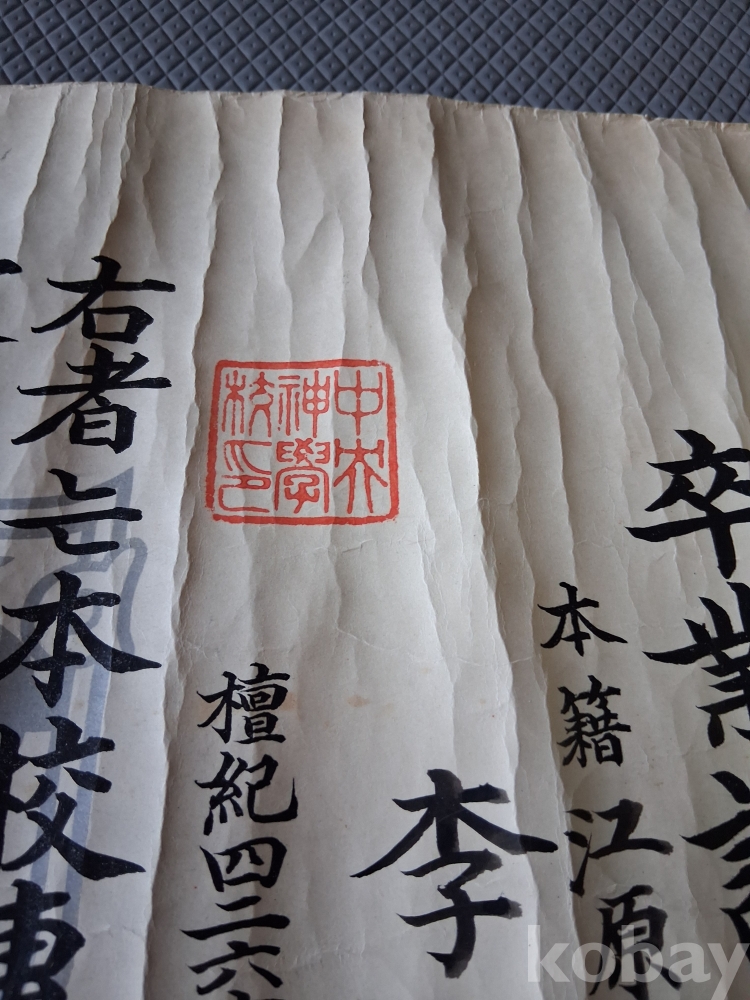 卒業
本籍 江原
李
檀紀四二六
中央神學校印
右者는本校
kobay